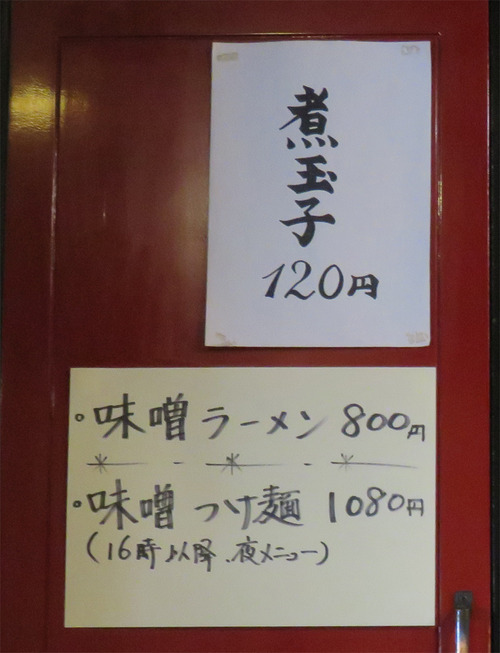 煮玉子
120円
。味噌ラーメン 800円
。味噌つけ麺 1080円
(16時以降、夜メニュー)